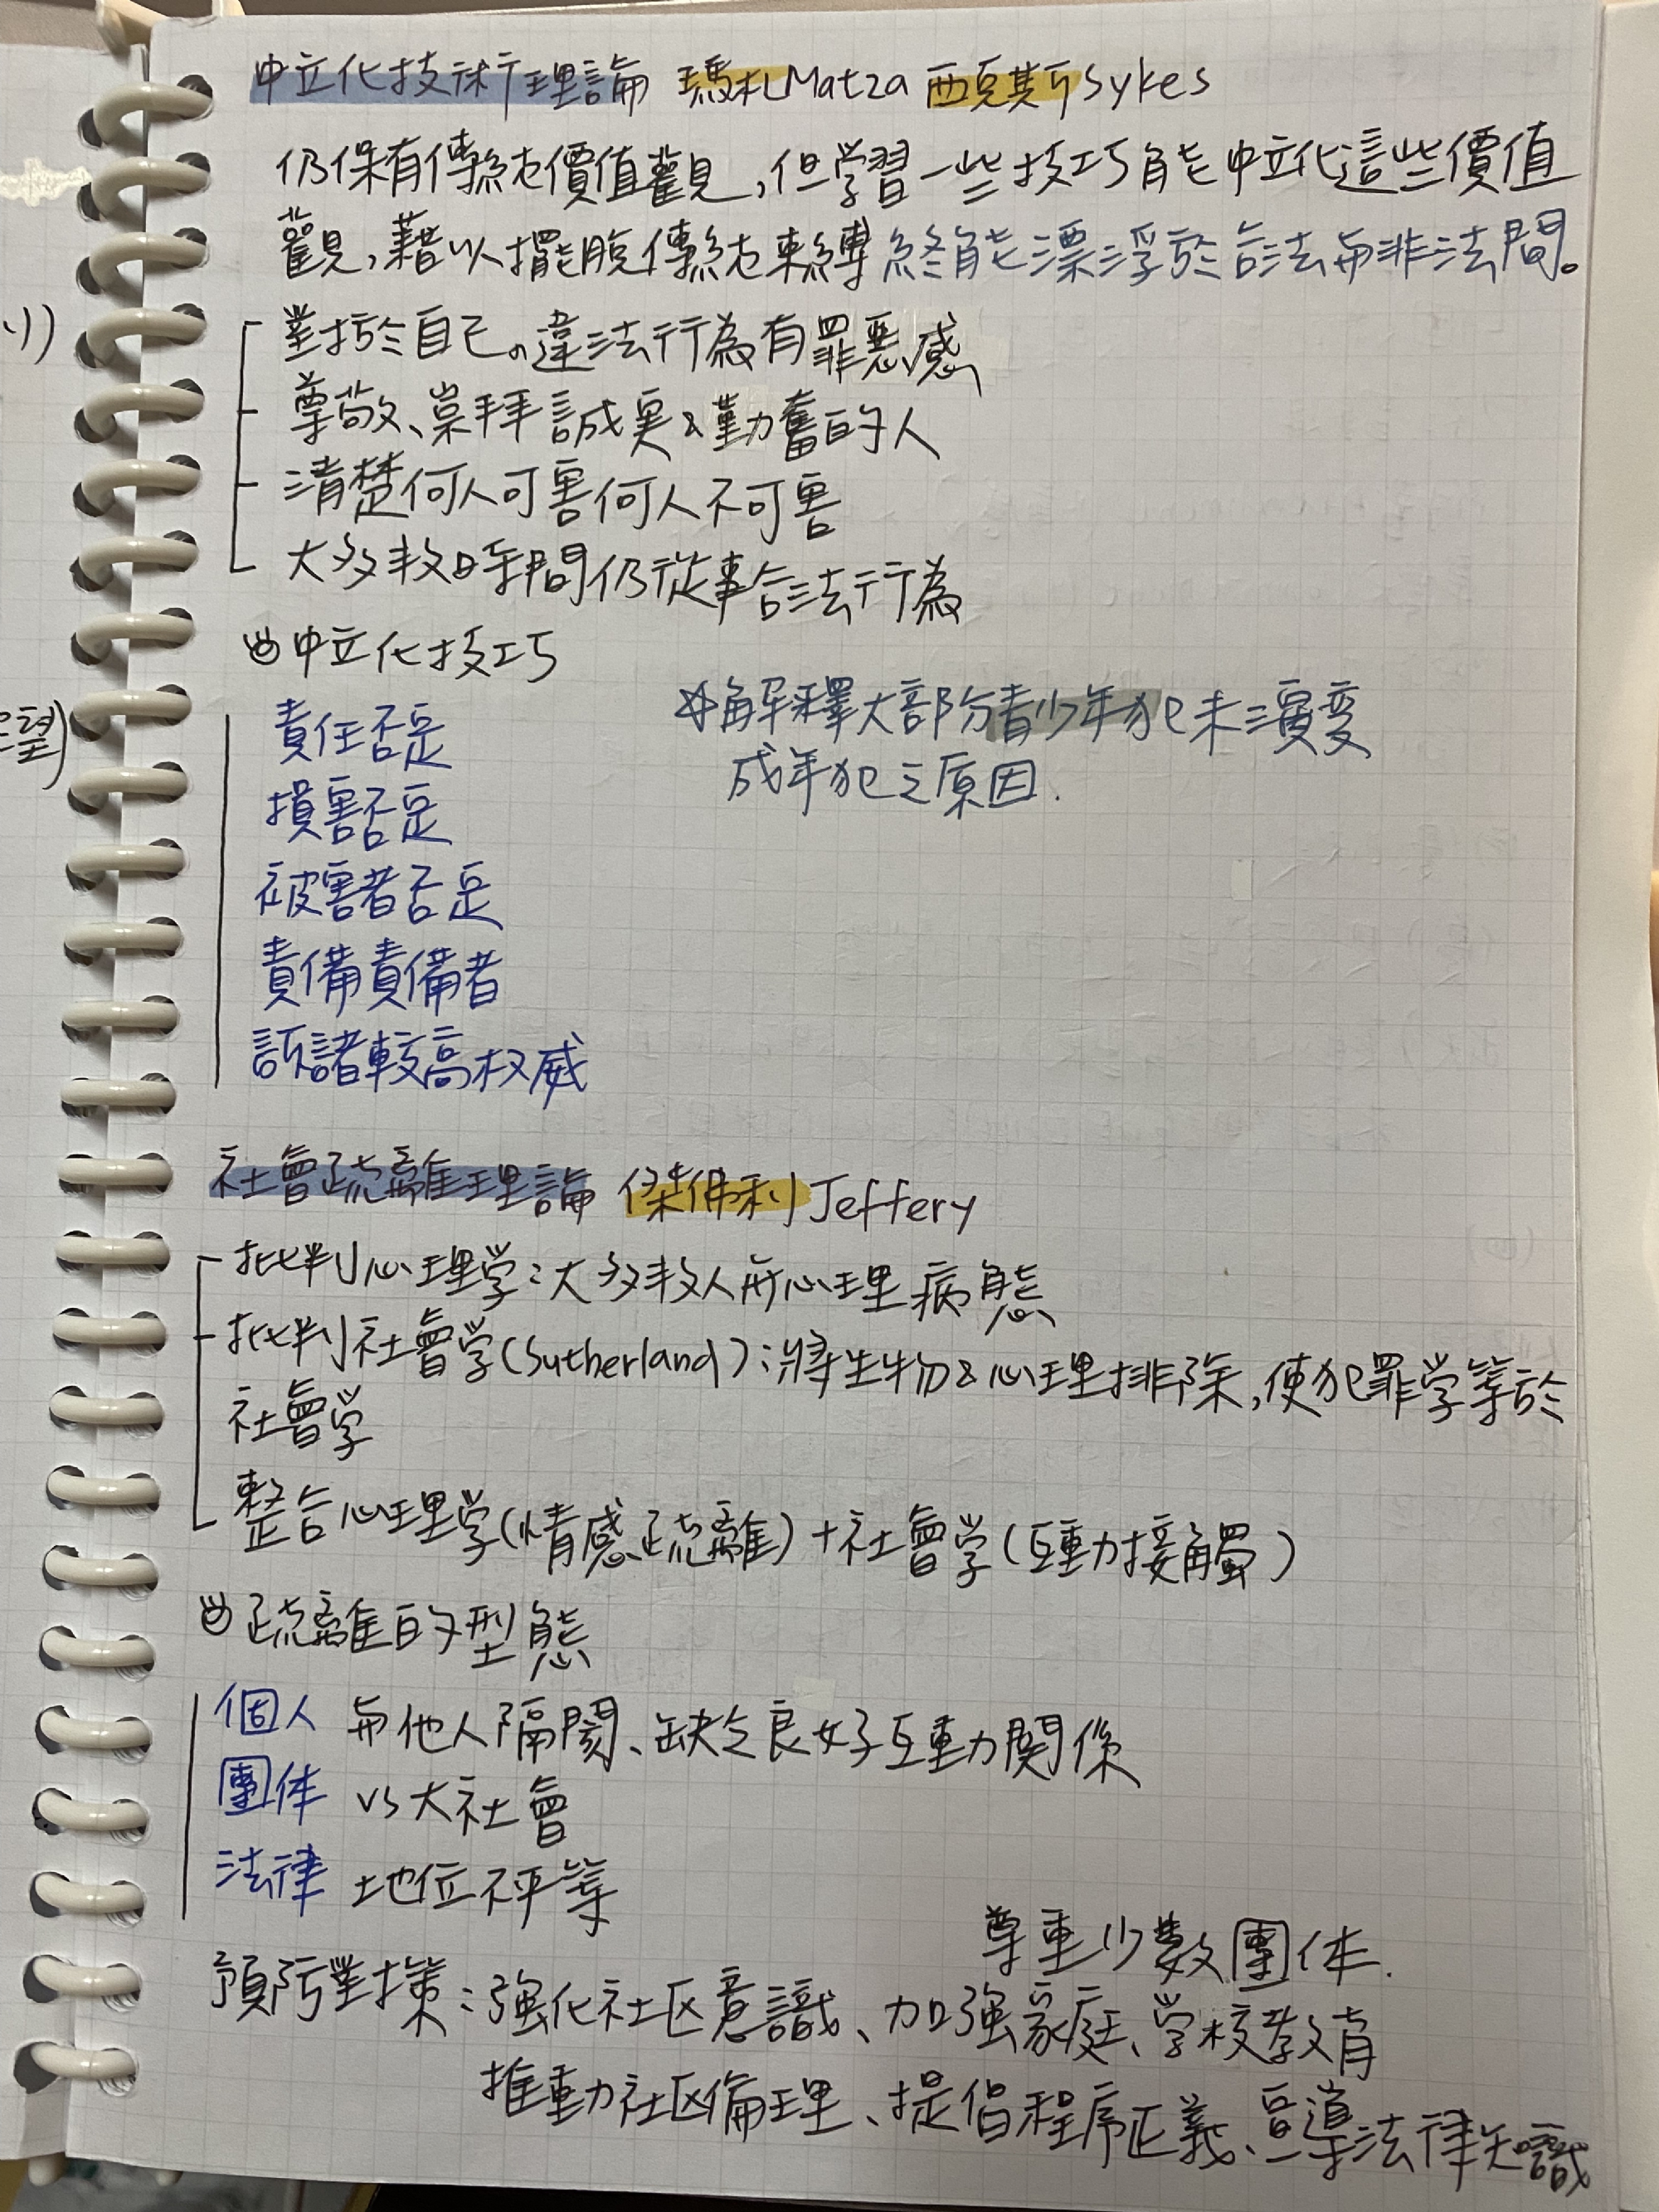 中立化技術理論 瑪札Matza 西克斯Sykes
仍保有傳統價值觀,但学習一些技巧能中立化這些價值
觀,藉以擺脫傳統束縛終能漂浮於合法与非法間。
對於自己的違法行為有罪惡感
尊敬、崇拜誠実&勤奮的人
清楚何人可害何人不可害
大多数時間仍從事合法行為
中立化技巧
責任否定
☆解釋大部份青少年犯未演变
損害否定
成年犯之原因.
被害者否定
責備責備者
訴諸較高权威
社會疏離理論 傑佛利Jeffery
批判心理学:大多数人無心理病態
批判社會学(Sutherland):將生物&心理排除,使犯罪学等於
社會学
整合心理学(情感疏離)+社會学(互動接觸)
疏離的型態
個人 与他人隔閡、缺乏良好互動関係
團体 vs大社會
法律 地位不平等
尊重少數團体.
預防對策:強化社区意識、加強家庭、学校教育
推動社区倫理、提倡程序正義、宣導法律知識
望)